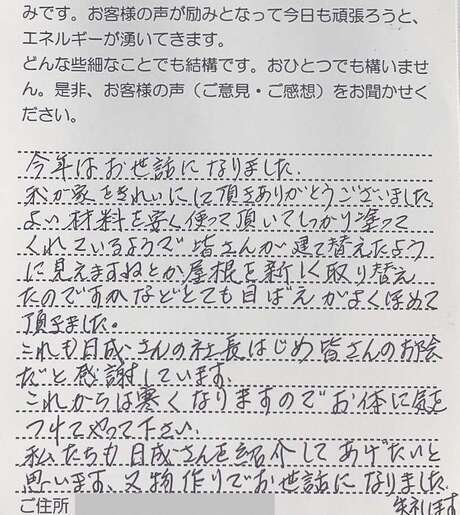 みです。お客様の声が励みとなって今日も頑張ろうと、
エネルギーが湧いてきます。
どんな些細なことでも結構です。おひとつでも構いませ
ん。是非、お客様の声（ご意見・ご感想）をお聞かせく
ださい。
今年はお世話になりました。
私が家をきれいにして頂きありがとうございました
よい材料を安く使って頂いてしっかり塗って
くれているようで皆さんが建て替えたよう
に見えますねとか屋根を新しく取り替え
たのですかなどとても目ばえがよくほめて
頂きました。
これも日成さんの社長はじめ皆さんのお陰
だと感謝しています。
これからは寒くなりますのでお体に気を
つけてやって下さい。
私たちも日成さんを紹介してあげたいと
思います。又物作りでお世話になりました。
失礼します
ご住所